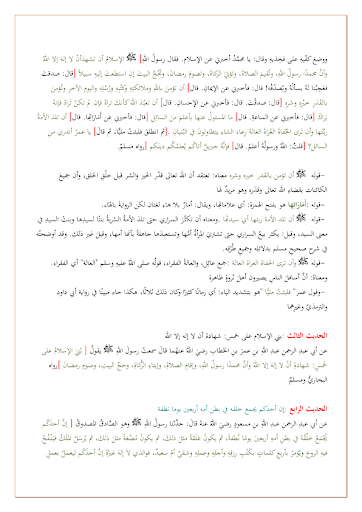 ووضع كفّيه على فخذيه وقال: يا محمّدُ أخبرني عن الإسلام. فقال رسولُ اللهِ] ﷺ الإسلامُ أن تشهدَأنْ لا إلهَ إلا اللهُ
وأنَّ محمدًا رسول اللهِ، وتُقيمَ الصلاةَ، وتؤتيَ الزكاةَ، وتصومَ رمضانَ، وتَحُجَّ البيتَ إن استطعتَ إليه سبيلاً ]قال: صدقتَ
فعجِبْنا لهُ يسألُهُ ويُصدِّقُه! قال: فأخبرني عن الإيمانِ. قال] أن تؤمنَ باللهِ وملائكتِهِ وكتُبِهِ ورُسُلِهِ واليومِ الآخرِ وتُؤمنَ
بالقدَرِ خيرِهِ وشرِهِ ]قال: صدقْتَ. قال: فأخبرني عن الإحسانِ. قال] أن تعبُدَ اللهَ كأنكَ تراهُ فإن لم تكُنْ تراهُ فإنهُ
يَراكَ ]قال: فأخبرني عن الساعةِ. قال] ما المسئولُ عنها بأعلمَ من السائلِ ]قال: فأخبرني عن أمَاراتِها. قال] أن تلدَ الأمةُ
ربَّتَها وأن ترَى الحُفاةَ العُراةَ العالةَ رِعاءَ الشاءِ يتطاولونَ في البُنيانِ .]ثم انطلقَ فلبثتُ مَليًّا، ثم قالَ] يا عمرُ أتدري من
السائلُ؟ ]قلتُ: اللهُ ورسولُهُ أعلمُ. قال] فإنَّهُ جبريلُ أتاكُم يُعلِّمُكُم دينَكم ]رواه مسلم.
-قوله ﷺ أن تؤمن بالقدر خيره وشره معناه: تعتقد أن الله تعالى قدّر الخير والشر قبل خلْق الخلق، وأن جميعَ
الكائنات بقضاءِ الله تعالى وقدَره وهو مريدٌ لها
-قوله :أمَارَاتِهَا هو بفتح الهمزة: أي علاماتها، ويقال: أمارٌ بلا هاء لغتان لكن الرواية بالهاء.
-قوله ﷺ أن تلد الأمة ربتها أي سيدتها .ومعناه أن تكثُرَ السراري حتى تلدَ الأمةُ السُّريَّةُ بنتًا لسيدِها وبنتُ السيدِ في
معنى السيد، وقيل: يكثر بيعُ السراري حتى تشتريَ المرأةُ أُمَّها وتستعبدَها جاهلةً بأنها أمها، وقيلَ غير ذلك. وقد أوضحتُه
في شرح صحيح مسلم بدلائله وجميع طُرُقِه.
-قوله ﷺ وأن ترى الحُفاة العراة العالة :جمع عائل، والعالة الفقراء، قولُه صلى اللهُ عليه وسلم "العالة" أي الفقراء.
ومعناهُ: أنَّ أسافلَ الناسِ يصيرون أهلَ ثروةٍ ظاهرة
-وقول عمر" فلبثتُ مَليًّا "هو بتشديد الياء: أي زمانًا كثيرًا وكان ذلك ثلاثًا، هكذا جاء مبينًا في رواية أبي داود
والترمذيّ وغيرهما
الحديث الثالث :بني الإسلام على خمسٍ: شهادة أن لا إله إلا الله
عن أبي عبدِ الرحمنِ عبدِ اللهِ بن عمرَ بنِ الخطابِ رضيَ اللهُ عنهُما قال سمعتُ رسول اللهِ ﷺ يقولُ [ بُنِيَ الإسلامُ على
خمسٍ: شهادةِ أنْ لا إلهَ إلا اللهُ وأنَّ محمدًا رسولُ اللهِ، وإقامِ الصلاةِ، وإيتاءِ الزَّكاةِ، وحجّ البيتِ، وصومِ رمضانَ ]رواه
البخاريُّ ومسلمٌ
الحديث الرابع :إن أحدكم يجمع خلقه في بطن أمه أربعين يوما نطفة
عن أبي عبدِ الرحمنِ عبدِ اللهِ بنِ مسعودٍ رضيَ اللهُ عنهُ قالَ: حدَّثنا رسولُ اللهِ ﷺ وهو الصّادقُ المصدوقُ [ إنَّ أحدَكُم
يُجْمَعُ خَلْقُهُ في بطنِ أمهِ أربعينَ يومًا نُطفةً، ثم يكونُ عَلَقةً مثلَ ذلكَ، ثم يكونُ مُضْغةً مثلَ ذلكَ، ثم يُرْسَلُ المَلَكُ فيَنْفُخُ
فيهِ الروحَ ويُؤمَرُ بأربعِ كلماتٍ بكَتْبِ رزقِهِ وأجلِهِ وعملِهِ وشقيٌّ أمْ سعيدٌ، فوالذي لا إلهَ غيرُهُ إنَّ أحدَكُم ليَعملُ بعملِ